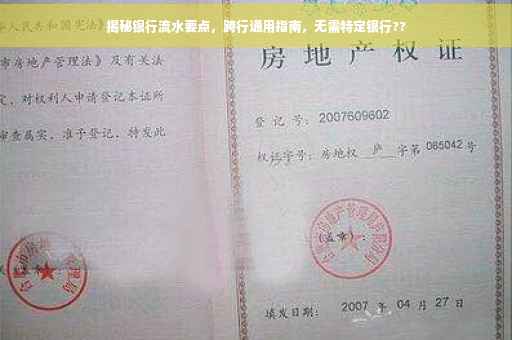 揭秘银行流水要点，跨行通用指南，无需特定银行??
华人民共和国宪法》
市房地产管理法》及有关法
定，对权利人申请登记本证所
审查属实，准予登记，特发此
房地产权证
登 记 号：2007609602
权证字号：房地权 庐 字第 085042 号
(盖章)：
填发日期： 2007 年 04 月 27 日